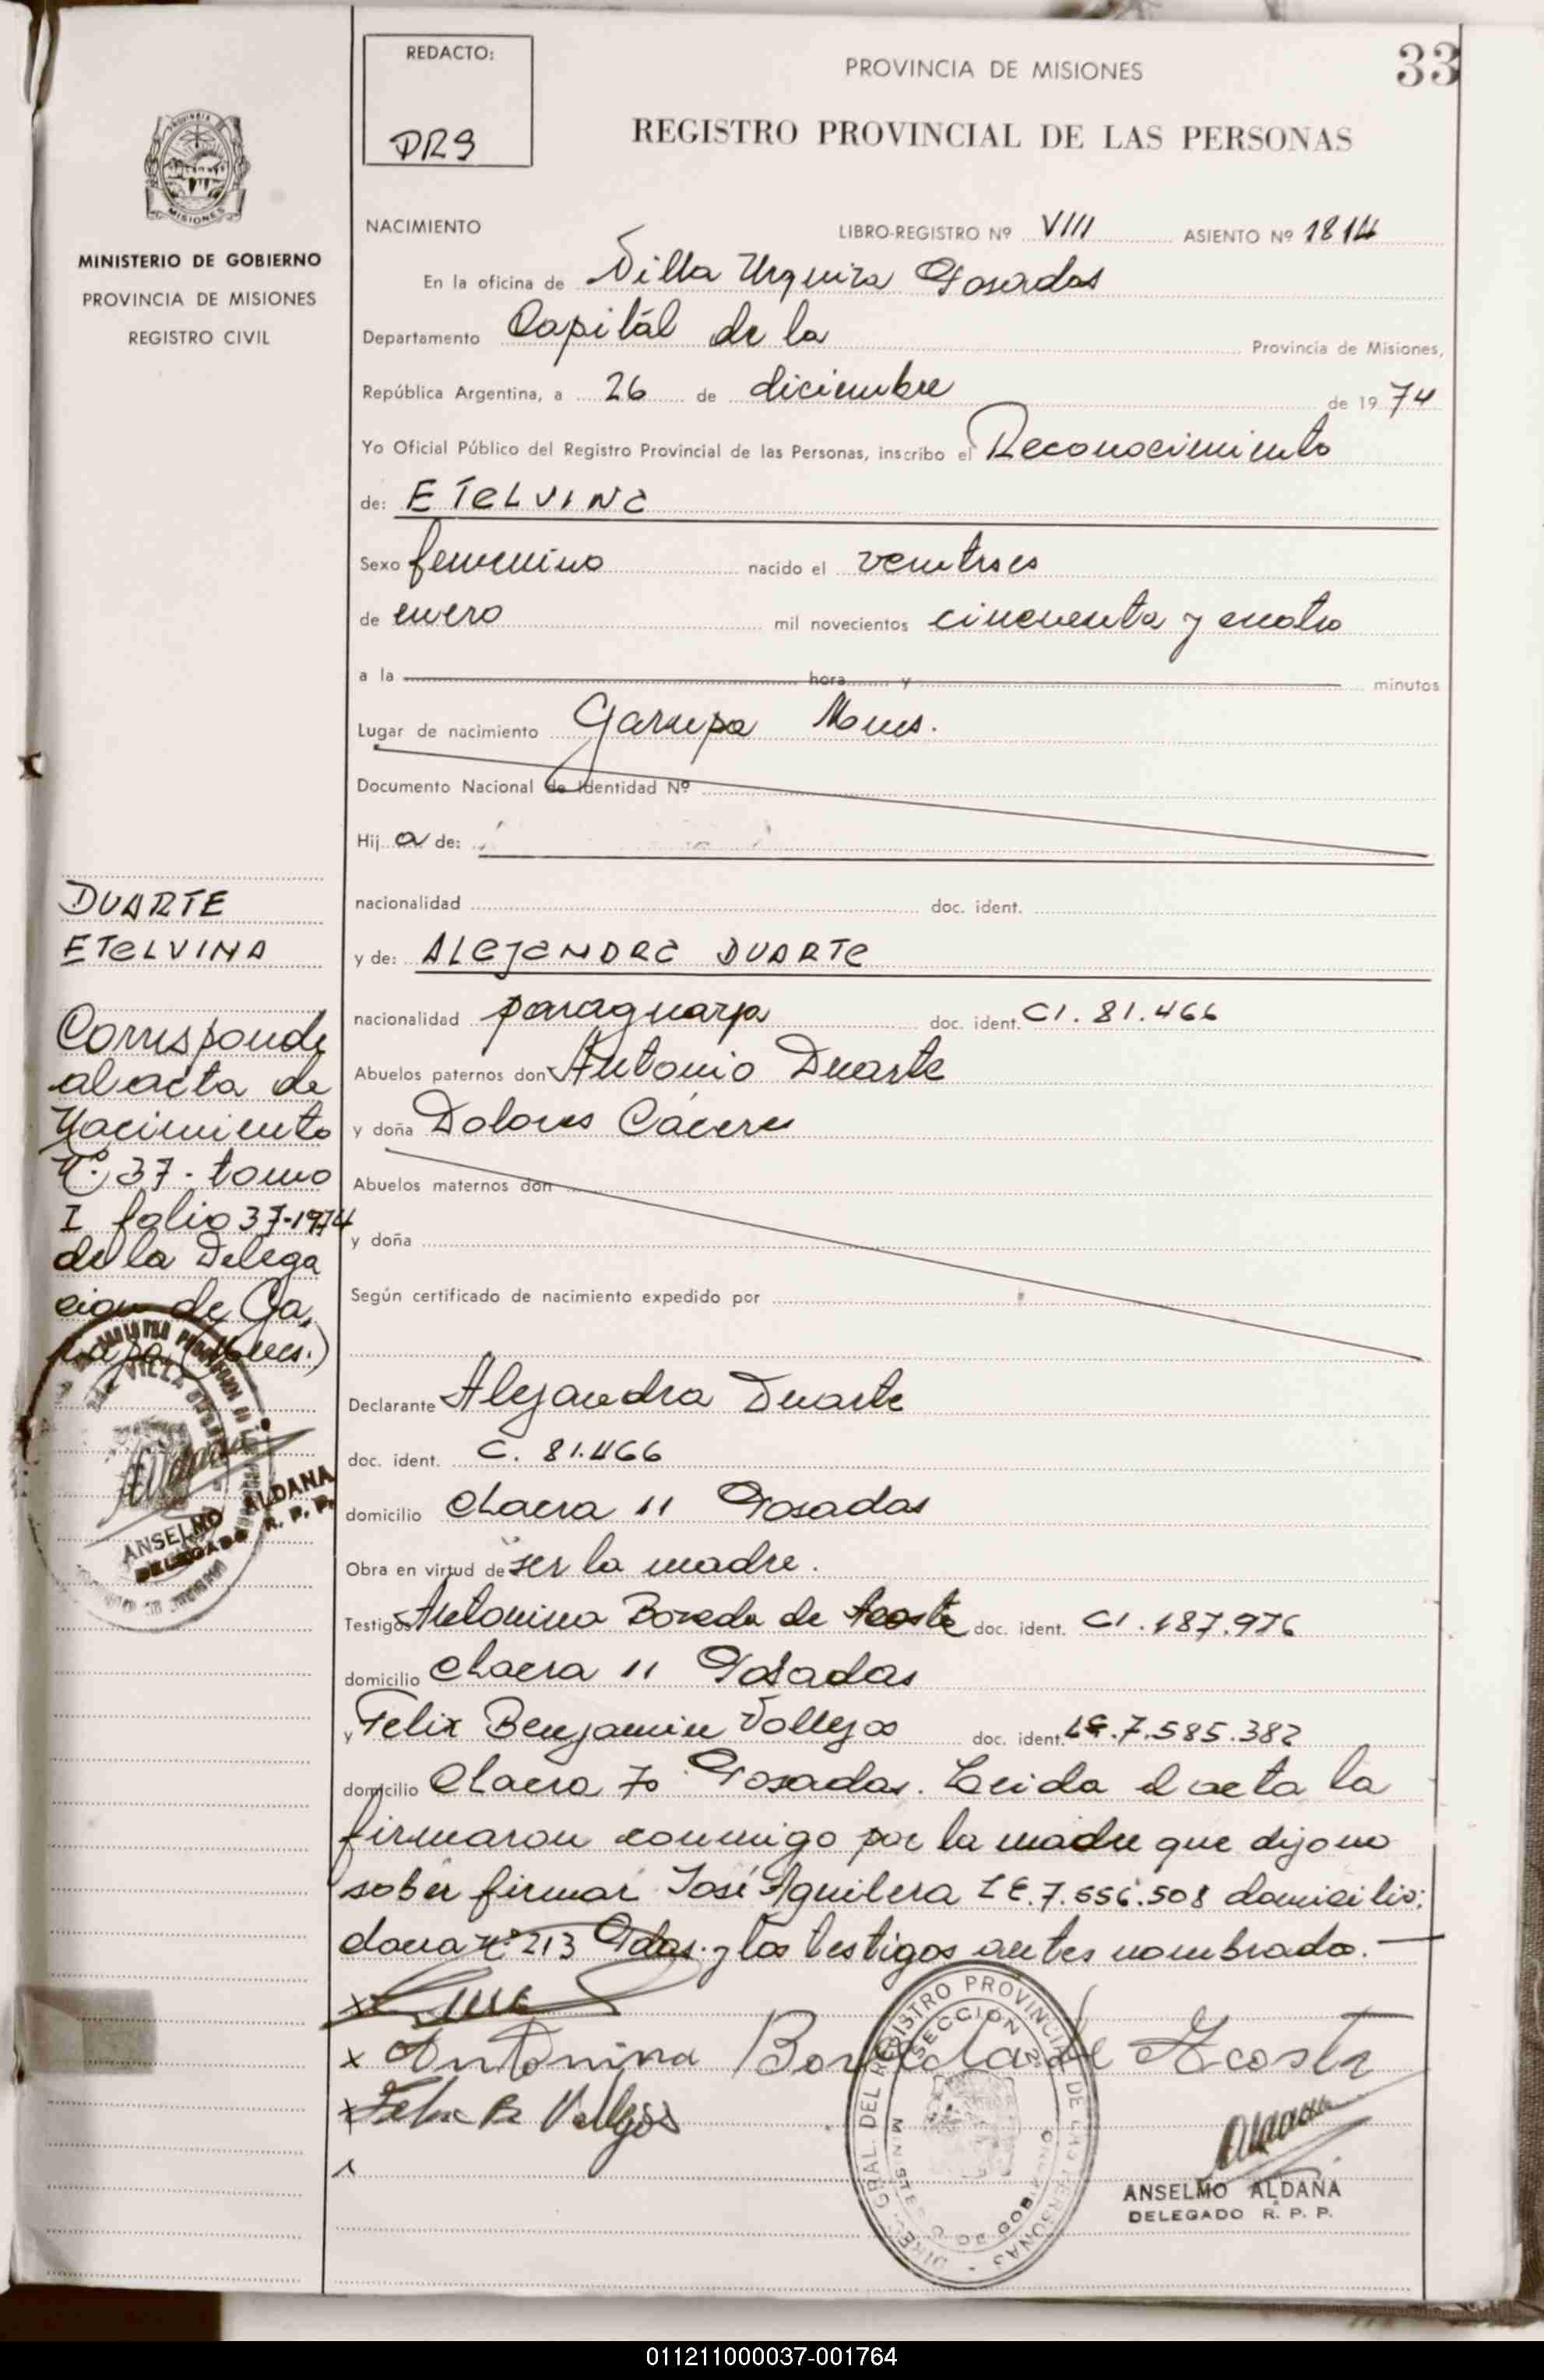 REDACTO:
DRG
PROVINCIA DE MISIONES
33
REGISTRO PROVINCIAL DE LAS PERSONAS
MISIONES
MINISTERIO DE GOBIERNO
PROVINCIA DE MISIONES
REGISTRO CIVIL
NACIMIENTO LIBRO-REGISTRO Nº VIII ASIENTO Nº 1814
En la oficina de Villa Urquiza Posadas
Departamento Capitál de la Provincia de Misiones,
República Argentina, a 26 de diciembre de 19 74
Yo Oficial Público del Registro Provincial de las Personas, inscribo el Reconocimiento
de: ETELVINA
Sexo femenino nacido el veintrses
de enero mil novecientos cincuenta y cuatro
a la hora y minutos
Lugar de nacimiento Garupa Mnes.
Documento Nacional de Identidad Nº
Hij a de:
nacionalidad doc. ident.
y de: ALEJANDRA DUARTE
nacionalidad paraguaya doc. ident. CI. 81.466
Abuelos paternos don Antonio Duarte
y doña Dolores Cáceres
Abuelos maternos don
y doña
Según certificado de nacimiento expedido por
Declarante Alejandra Duarte
doc. ident. C. 81.466
domicilio chacra 11 Posadas
Obra en virtud de ser la madre.
Testigos Antonina Boveda de Acosta doc. ident. CI. 187.976
domicilio chacra 11 Posadas
y Felix Benjamin Vallejos doc. ident. LE. 7.585.382
domicilio Chacra 70 Posadas. Leida el acta la
firmaron conmigo por la madre que dijo no
saber firmar José Aguilera LE. 7.556.508 domicilio:
chacra Nº 213 Pdas. y los testigos antes nombrado.
x
x Antonina Boveda de Acosta
x Felix B Vallejos
DUARTE
ETELVINA
Corresponde
al acta de
Nacimiento
Nº 37 - tomo
I folio 37-1974
de la Delega
cion de Ga,
rupa (Mnes.)
ANSELMO ALDANA
DELEGADO R. P. P.
DIREC. GRAL. DEL REGISTRO PROVINCIAL DE LAS PERSONAS
SECCION 2ª
MINISTERIO DE GOBIERNO
ANSELMO ALDANA
DELEGADO R. P. P.
011211000037-001764